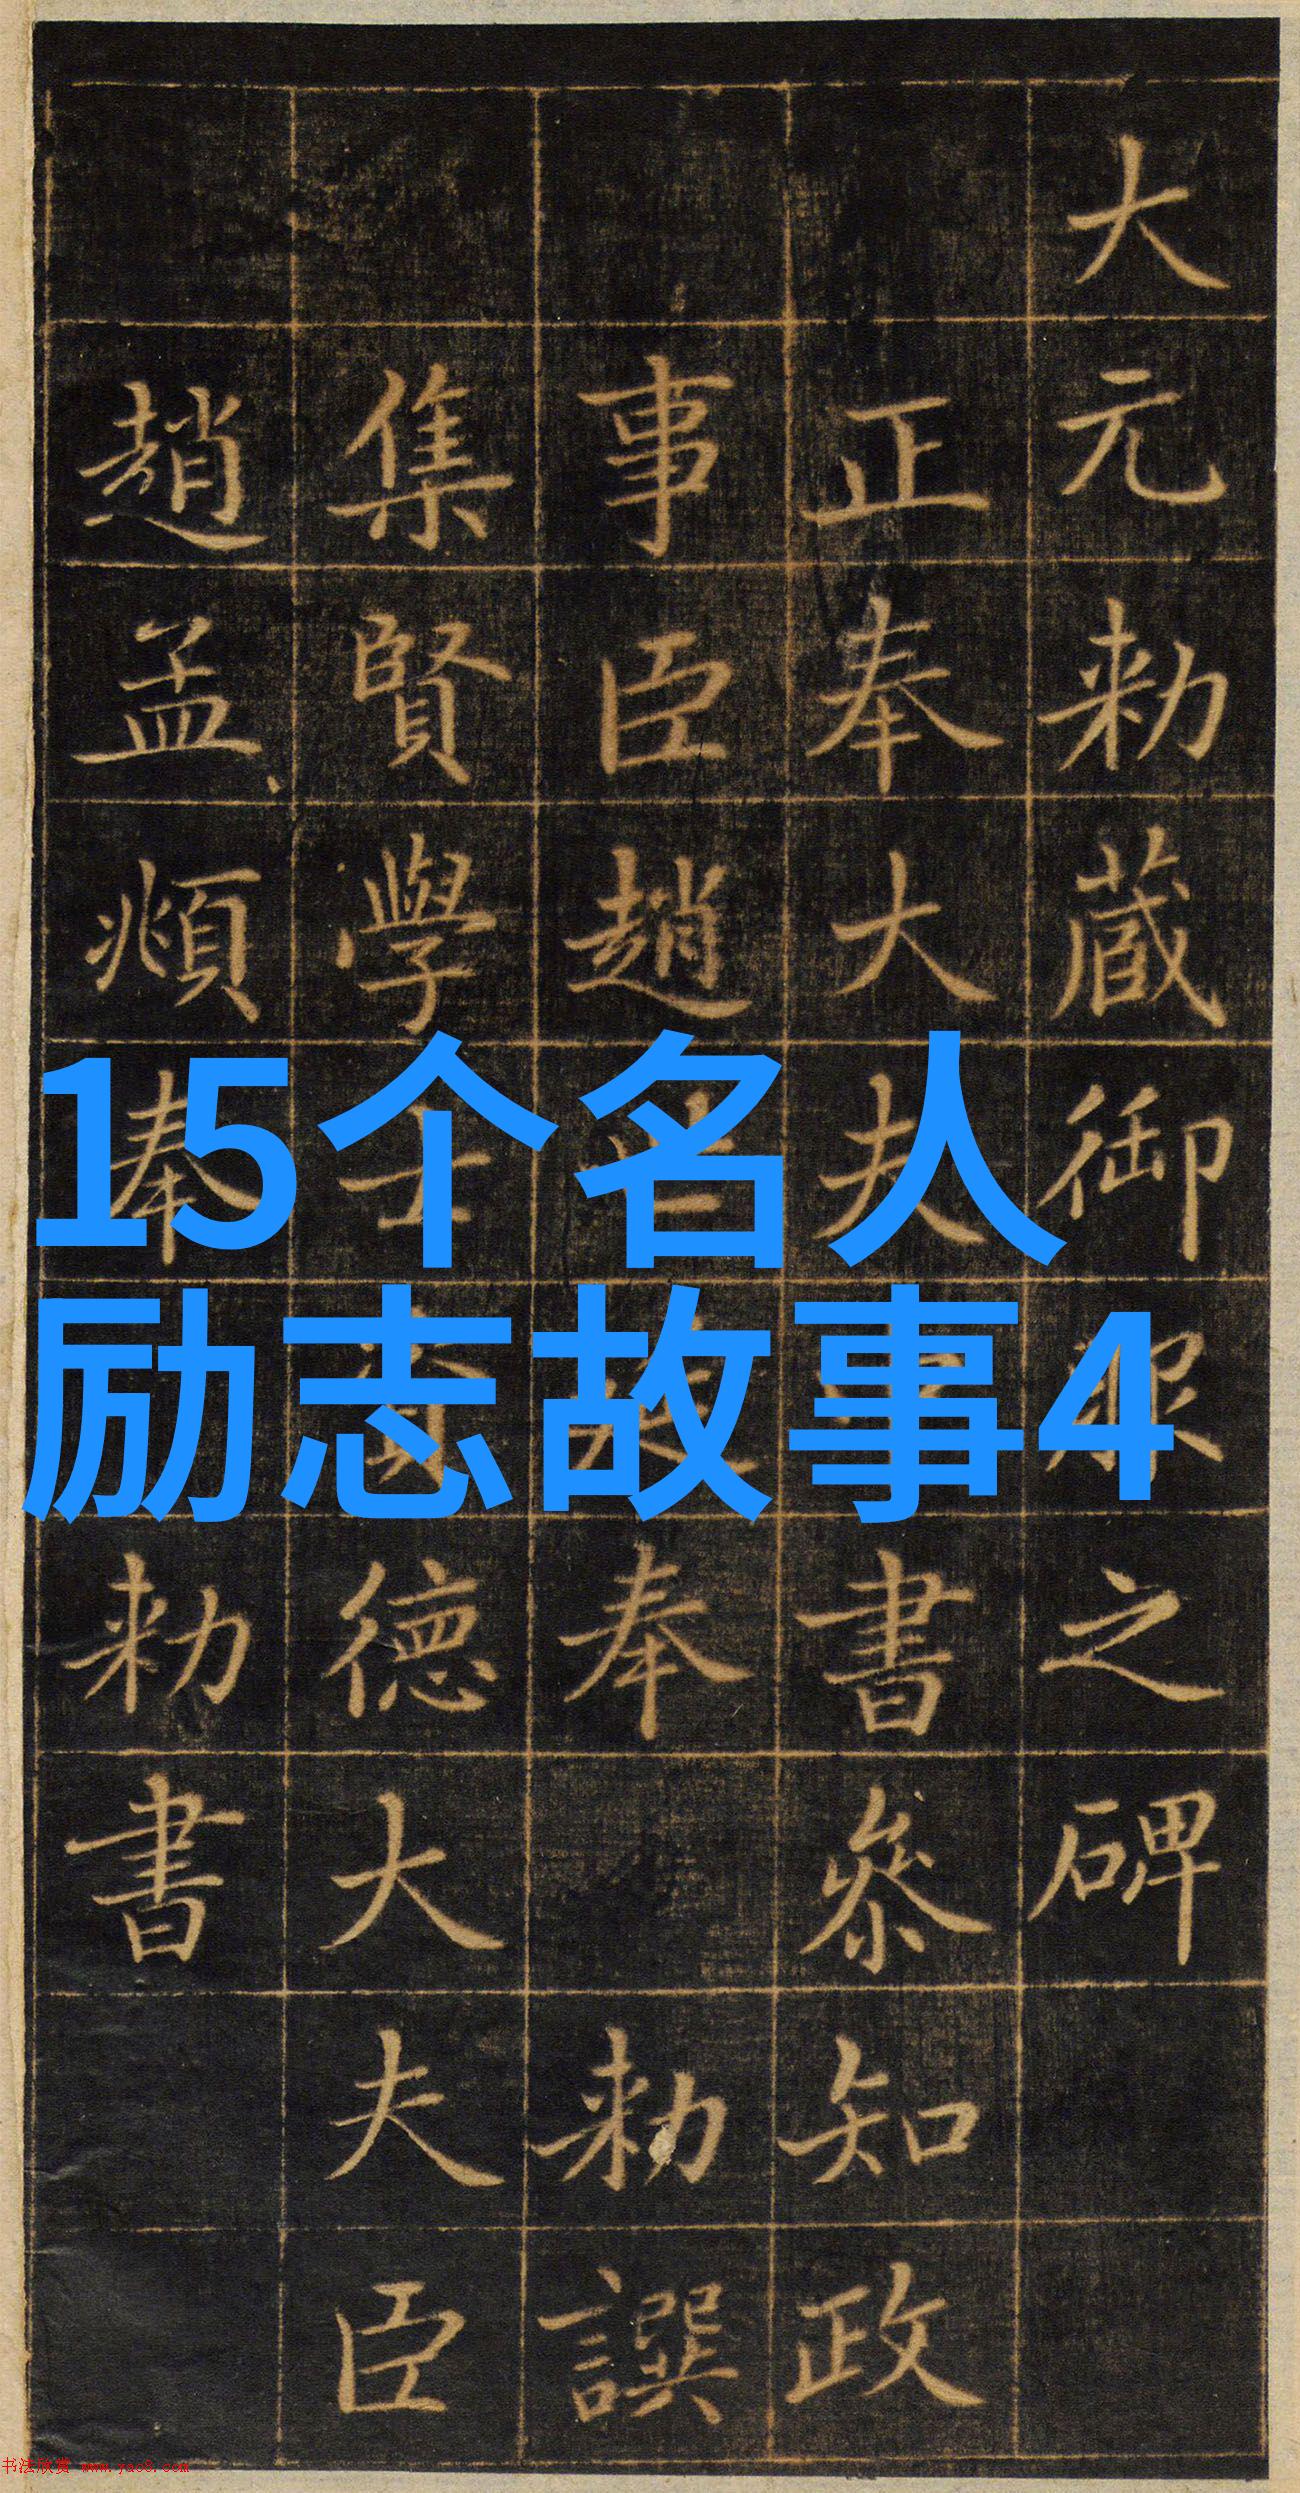 大元勅藏御服之碑
正奉大夫書參知政
事臣趙世延奉勅譔
集賢學士資德大夫臣
趙孟頫奉勅書
15个名人
励志故事4
书法欣赏 www.yac8.com